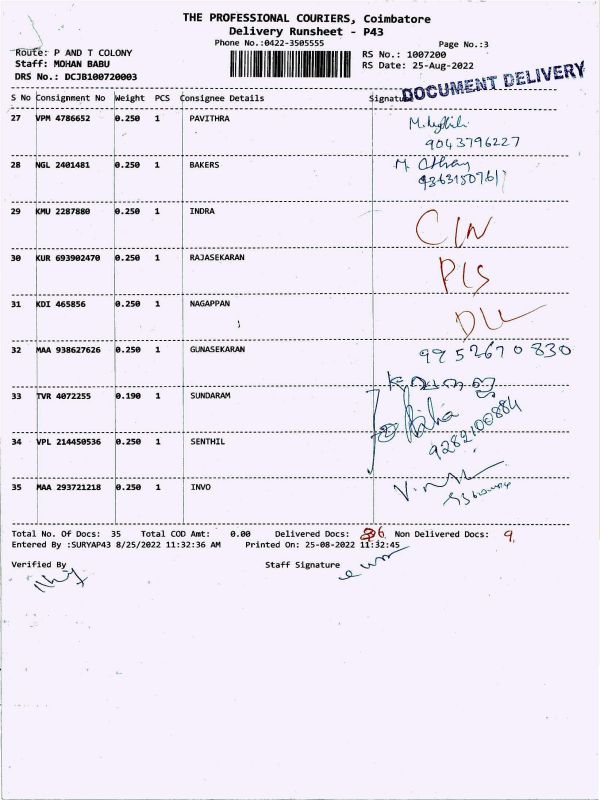 THE PROFESSIONAL COURIERS, Coimbatore
Delivery Runsheet - P43
Phone No.:0422-3505555
Page No.:3
Route: P AND T COLONY
RS No.: 1007200
Staff: MOHAN BABU
RS Date: 25-Aug-2022
DRS No.: DCJB100720003
DOCUMENT DELIVERY
S No Consignment No Weight PCS Consignee Details Signature
27 VPM 4786652 0.250 1 PAVITHRA
9043796227
28 NGL 2401481 0.250 1 BAKERS
9363150761
29 KMU 2287880 0.250 1 INDRA
CIN
30 KUR 693902470 0.250 1 RAJASEKARAN
PIS
31 KDI 465856 0.250 1 NAGAPPAN
DLL
32 MAA 938627626 0.250 1 GUNASEKARAN
9952670830
33 TVR 4072255 0.190 1 SUNDARAM
34 VPL 214450536 0.250 1 SENTHIL
9282100884
35 MAA 293721218 0.250 1 INVO
Total No. Of Docs: 35 Total COD Amt: 0.00 Delivered Docs: 26 Non Delivered Docs: 9
Entered By :SURYAP43 8/25/2022 11:32:36 AM Printed On: 25-08-2022 11:32:45
Verified By Staff Signature